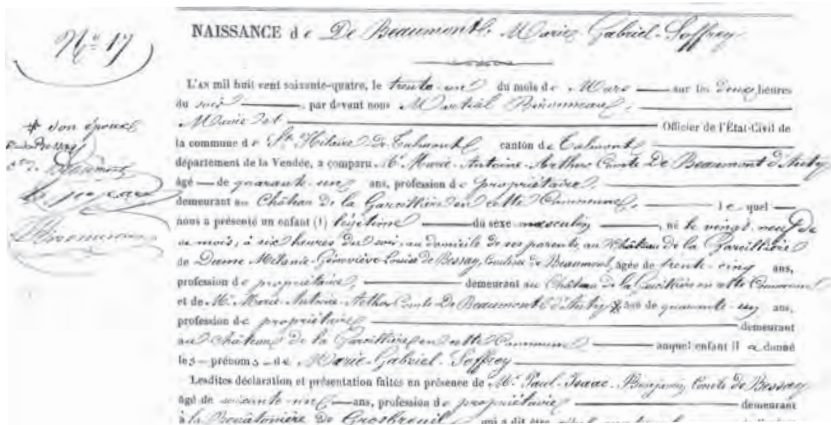 Nº 17
NAISSANCE de De Beaumont, Marie-Gabriel-Soffrey
L'AN mil huit cent soixante-quatre, le trente-un du mois de Mars sur les deux heures
du soir, par devant nous Martial
Officier de l'État-Civil de
la commune de St Hilaire-De-Talmont canton de Talmont
département de la Vendée, a comparu Mr Marie-Antoine-Arthur Comte De Beaumont d'Autry
âgé de quarante-un ans, profession de propriétaire,
demeurant au Château de la en cette Commune, lequel
nous a présenté un enfant (1) légitime du sexe masculin, né le vingt-neuf de
ce mois, à six heures du soir, au domicile de ses parents, au Château de la
de Dame Mélanie-Géneviève-Louise de Bessay, Comtesse de Beaumont, âgée de trente-cinq ans,
profession de propriétaire, demeurant au Château de la en cette Commune
et de Mr Marie-Antoine-Arthur Comte De Beaumont d'Autry âgé de quarante-un ans,
profession de propriétaire demeurant
au Château de la en cette Commune auquel enfant il a donné
les prénoms de Marie-Gabriel-Soffrey
Lesdites déclaration et présentation faites en présence de Mr Paul-Isaac-Benjamin, Comte de Bessay
âgé de soixante-un ans, profession de propriétaire demeurant
à la de Grosbreuil qui a dit être
* son époux